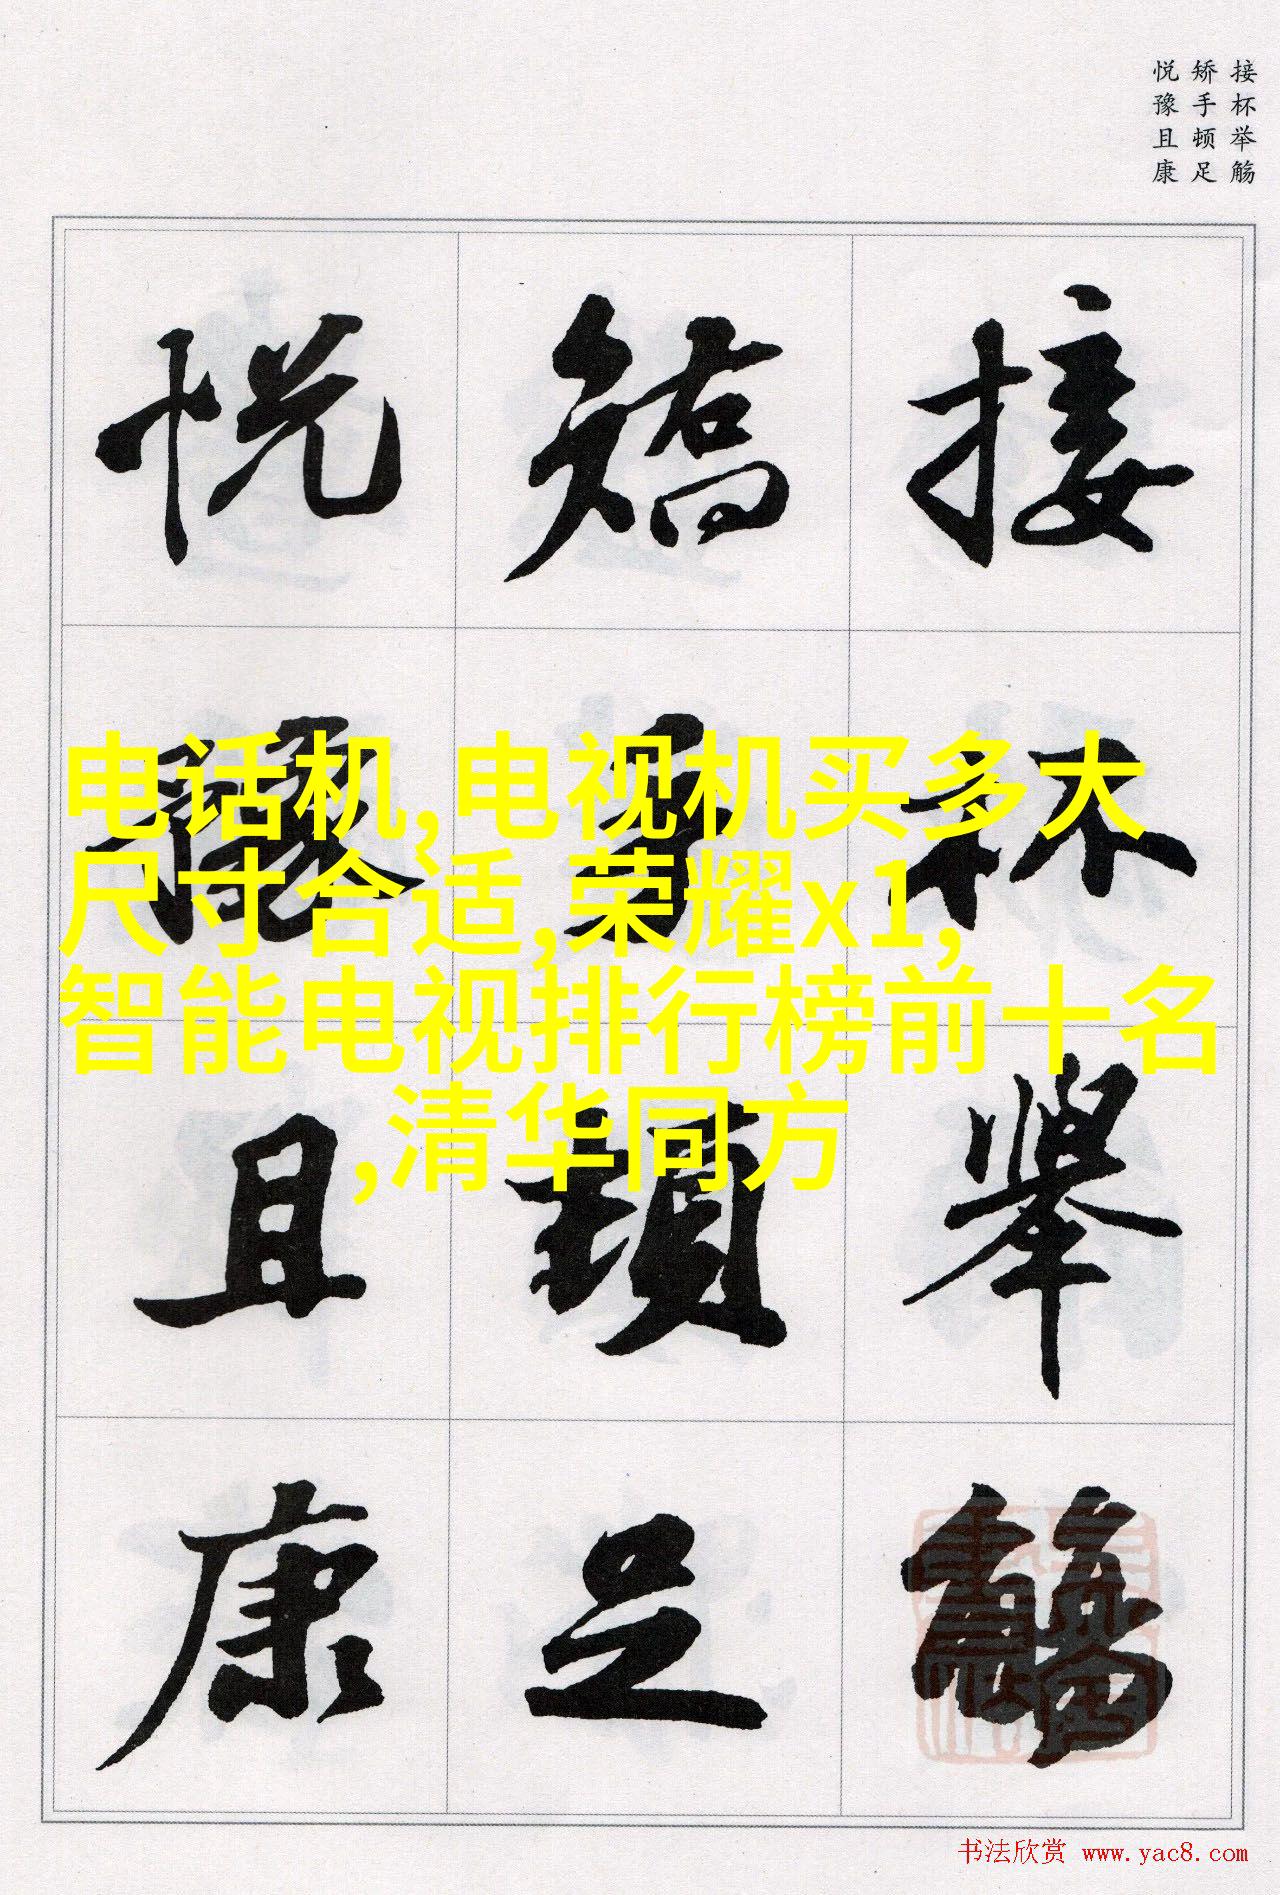 接杯举觞
矫手顿足
悦豫且康
接杯舉觴
矯手頓足
悦豫且康
电话机,电视机买多大
尺寸合适,荣耀x1,
智能电视排行榜前十名
,清华同方
书法欣赏 www.yac8.com